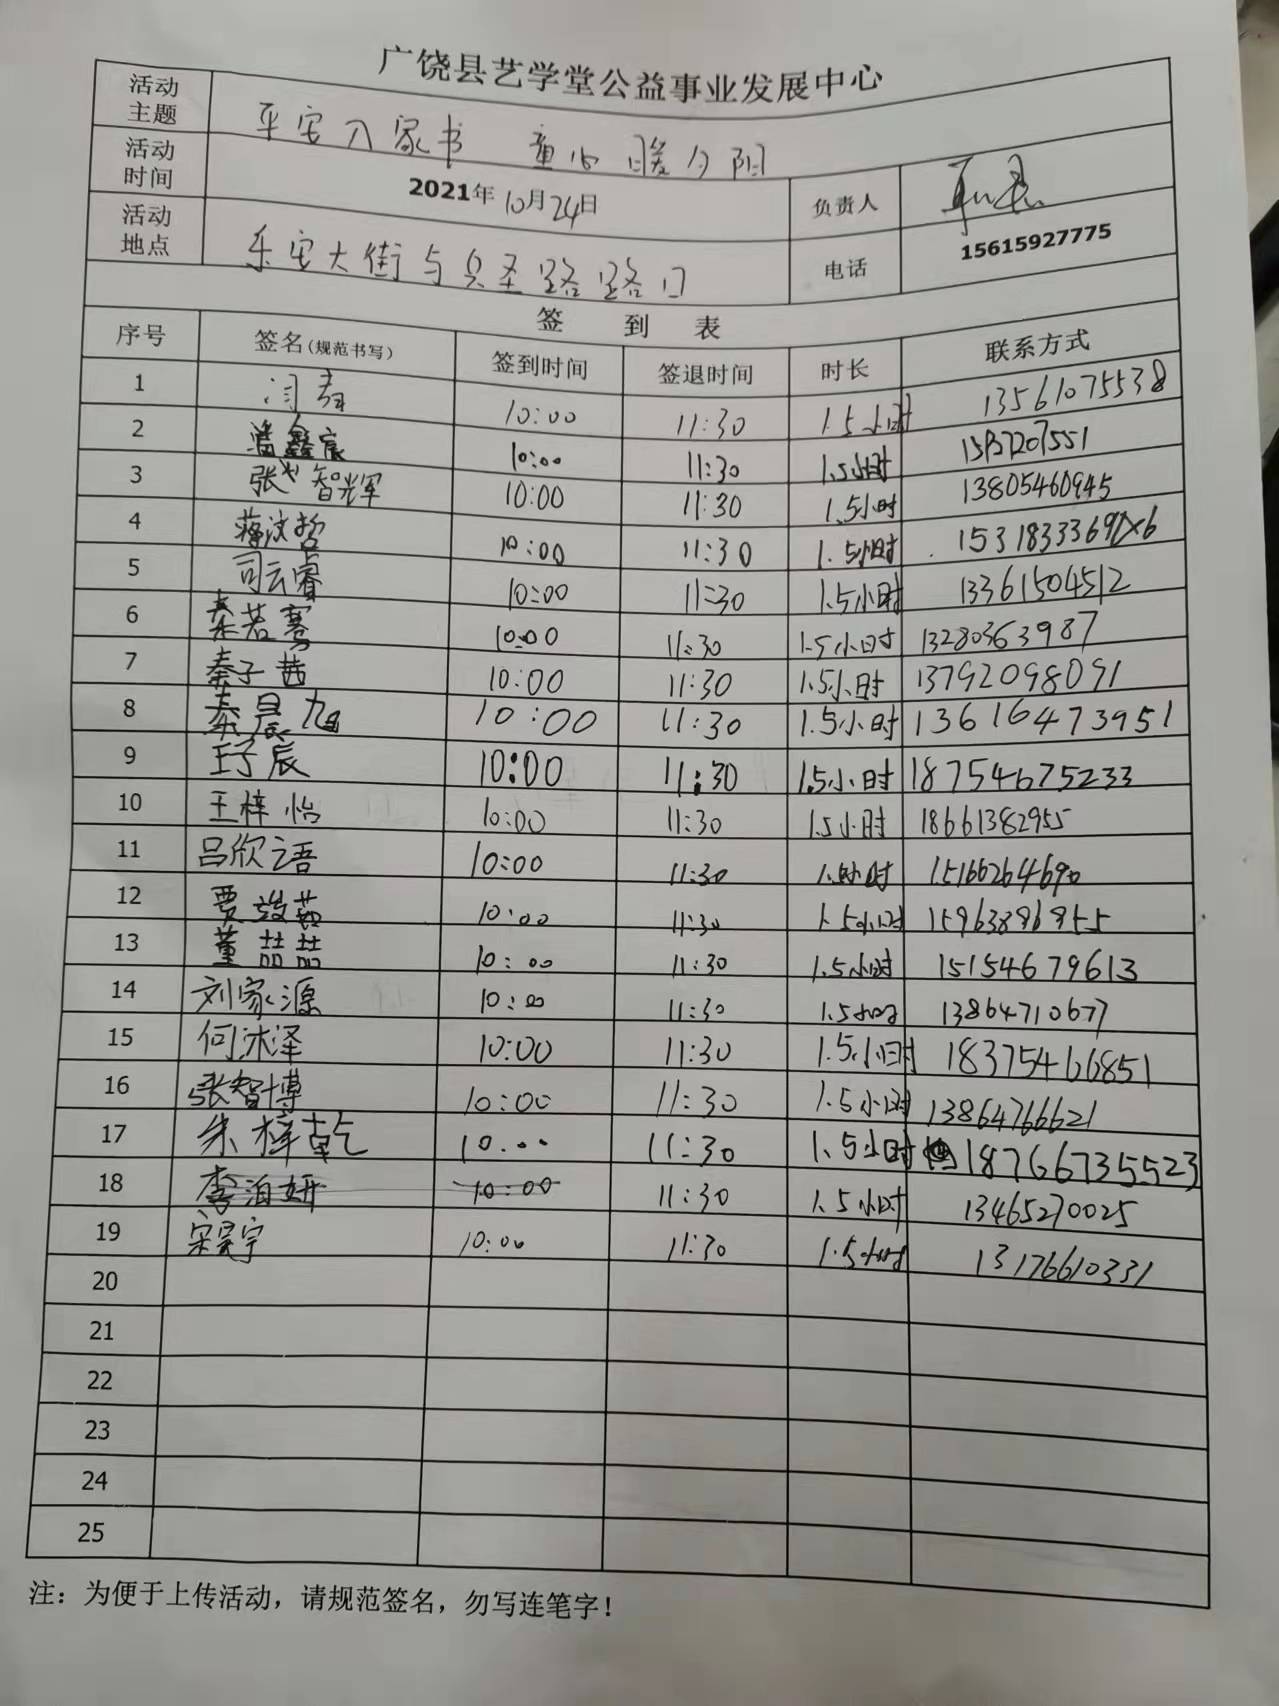 广饶县艺学堂公益事业发展中心
活动主题 平安入家书 童心暖夕阳
活动时间 2021年10月24日 负责人
活动地点 乐安大街与兵圣路路口 电话 15615927775
签到表
序号 签名(规范书写) 签到时间 签退时间 时长 联系方式
1 闫春 10:00 11:30 1.5小时 13561075538
2 潘鑫宸 10:00 11:30 1.5小时
3 张智辉 10:00 11:30 1.5小时 13805460945
4 蒋汶哲 10:00 11:30 1.5小时
5 司云睿 10:00 11:30 1.5小时 13361504512
6 秦若骞 10:00 11:30 1.5小时 13280363987
7 秦子茜 10:00 11:30 1.5小时 13792098091
8 秦晨旭 10:00 11:30 1.5小时 13616473951
9 王子辰 10:00 11:30 1.5小时 18754675233
10 王梓怡 10:00 11:30 1.5小时 18661382955
11 吕欣语 10:00 11:30 1.5小时 15166264690
12 贾 10:00 11:30 1.5小时
13 董喆喆 10:00 11:30 1.5小时 15154679613
14 刘家源 10:00 11:30 1.5小时 13864710677
15 何沐泽 10:00 11:30 1.5小时 18375466851
16 张智博 10:00 11:30 1.5小时 13864766621
17 朱梓乾 10:00 11:30 1.5小时 18766735523
18 李泊妍 10:00 11:30 1.5小时 13465270025
19 宋昊宇 10:00 11:30 1.5小时 13176610331
20
21
22
23
24
25
注：为便于上传活动，请规范签名，勿写连笔字！